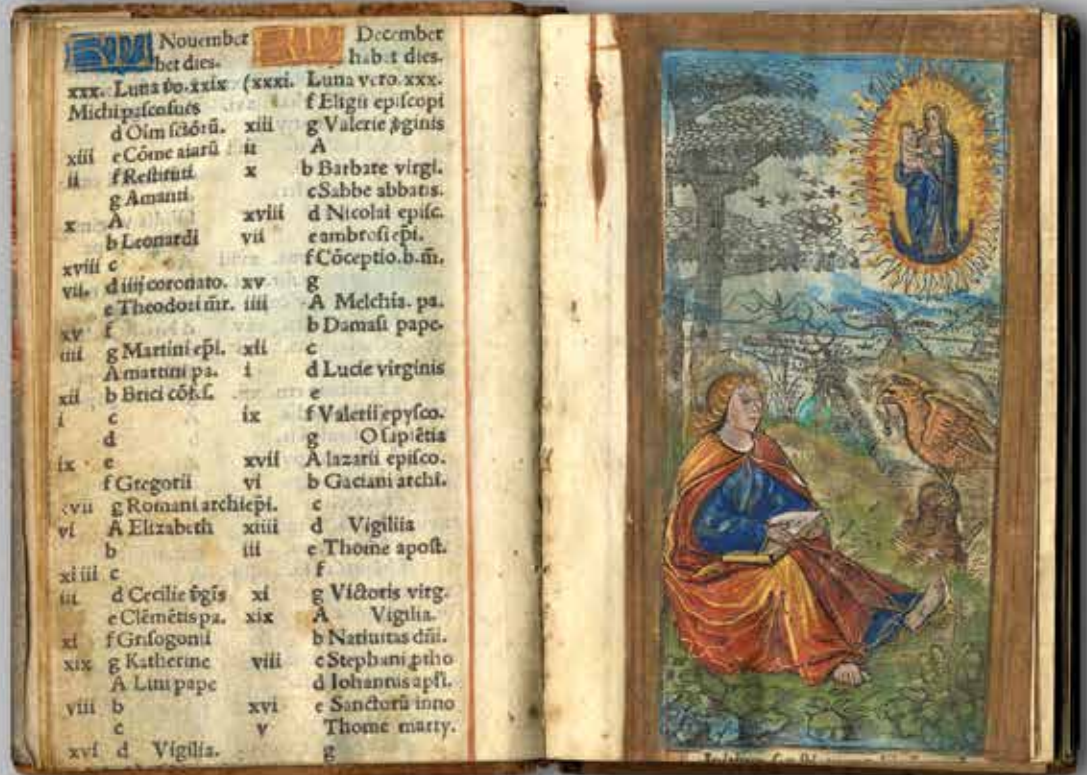 KL Nouember
bet dies.
xxx. Luna v̄o. xxix
d Oīm sctōrū.
xiii e Cōme aīarū
ii f Restituti
g Amanti.
x A
b Leonardi
xviii c
vii. d iiij coronato.
e Theodori m̄r.
xv f
iiii g Martini ep̄i.
A martini pa.
xii b Brici cōf.
i c
d
ix e
f Gregorii
xvii g Romani archiep̄i.
vi A Elizabeth
b
xiiii c
iii d Cecilie v̄gis
e Clēmētis pa.
xi f Grisogonii
xix g Katherine
A Lini pape
viii b
c
xvi d Vigilia.
KL December
hab t dies.
(xxxi. Luna vero. xxx.
f Eligii episcopi
xiii g Valerie v̄ginis
ii A
x b Barbare virgi.
c Sabbe abbatis.
xviii d Nicolai episc.
vii e ambrosi ep̄i.
f Cōceptio. b. m̄.
xv g
iiii A Melchia. pa.
b Damasi pape.
xii c
i d Lucie virginis
e
ix f Valerii epysco.
g O sapiētia
xvii A lazarii episco.
vi b Gaciani archi.
c
xiiii d Vigiliia
iii e Thome apost.
f
xi g Victoris virg.
xix A Vigilia.
b Natiuitas dñi.
viii c Stephani ptho
d Iohannis apsi.
xvi e Sanctorū inno
v Thome marty.
g